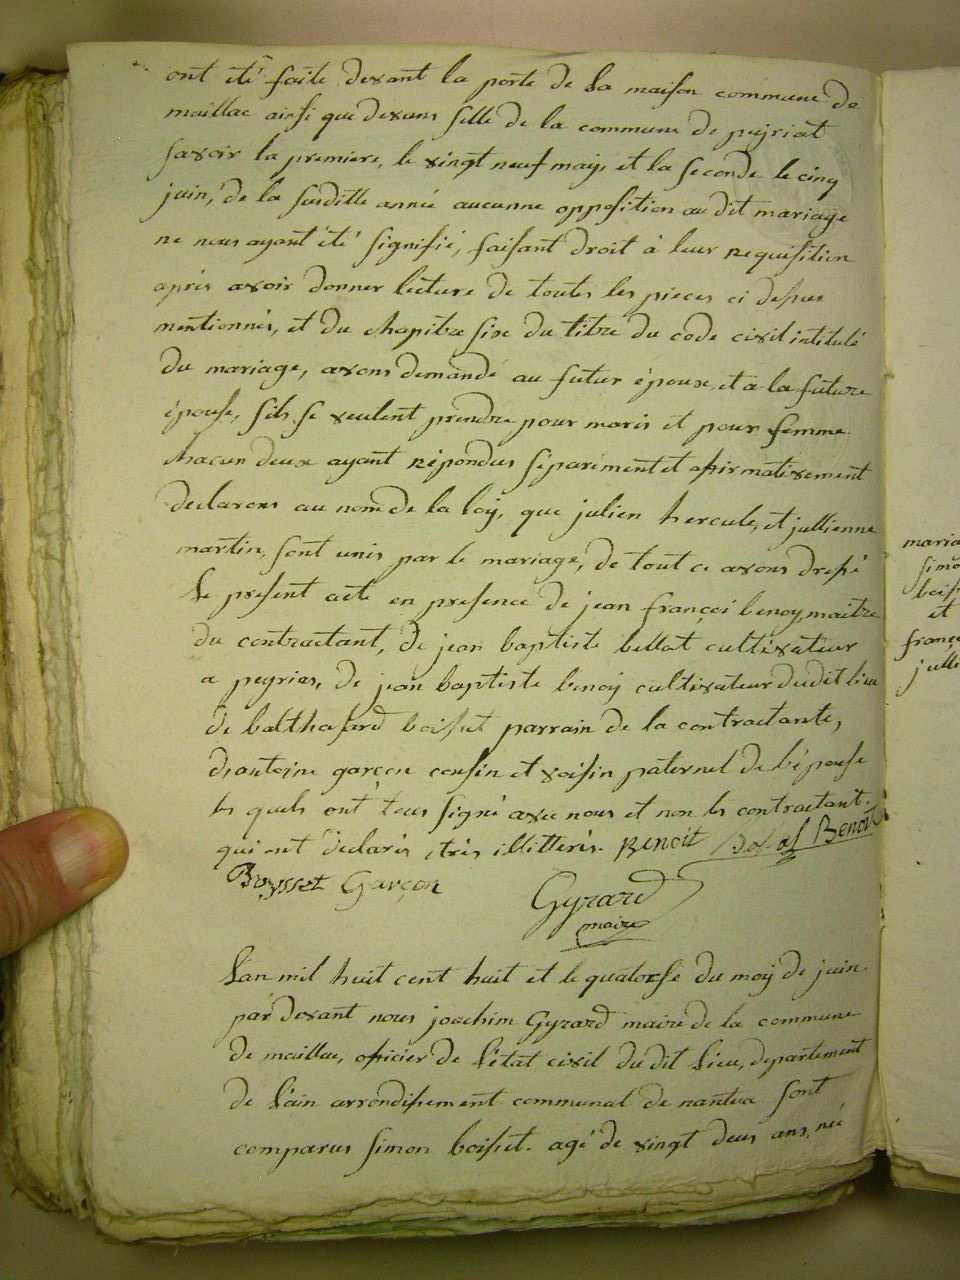 ont été faite devant la porte de la maison commune de
maillac ainsi que devens selle de la commune de peyriat
savoir la premiere, le vingt neuf may, et la seconde le cinq
juin, de la susditte année aucunne opposition au dit mariage
ne nous ayant été signifié, faisant droit à leur requisition
après avoir donner lecture de toutes les pieces ci depus
mentionnés, et du chapitre sixe du titre du code civil intitulé
du mariage, avons demandé au futur époux, et a la future
épouse, sils se veulent prendre pour maris et pour femme
chacun deux ayant répondus séparément et afirmativement
declarons au nom de la loy, que julien hercule, et jullienne
martin, sont unis par le mariage, de tout ce avons dressé
le present acte en presence de jean françoi benoy, maitre
du contractant, de jean baptiste bellot cultivateur
a peyrias, de jean baptiste benoy cultivateur dudit lieu
de balthasard boisset parrain de la contractante,
dantoine garçon cousin et voisin paternel de l'épouse
les quels ont tous signé avec nous et non les contractant
qui ont déclarés etrés illittérés. Benoit Benoit
Boysset Garçon
Gyrard
maire
L'an mil huit cent huit et le quatorse du moy de juin
par devant nous joachim Gyrard maire de la commune
de maillac, oficier de l'état civil du dit lieu, departement
de l'ain arrondissement communal de nantua sont
comparus simon boisset agé de vingt deus ans, né
maria
simo
boiss
et
franç
julli